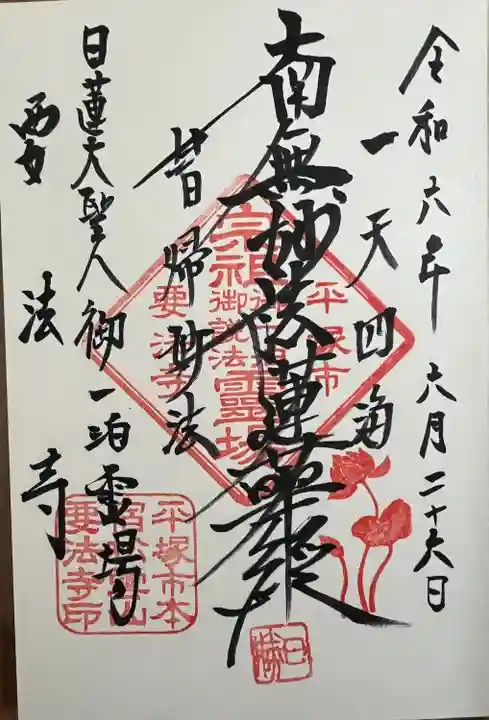 令和六年六月二十六日
一天四海
南無妙法蓮華経
昔帰妙法
日蓮大聖人御一泊霊場
要法寺
平塚市
宗祖
御説法霊場
要法寺
平塚市本
要法寺印